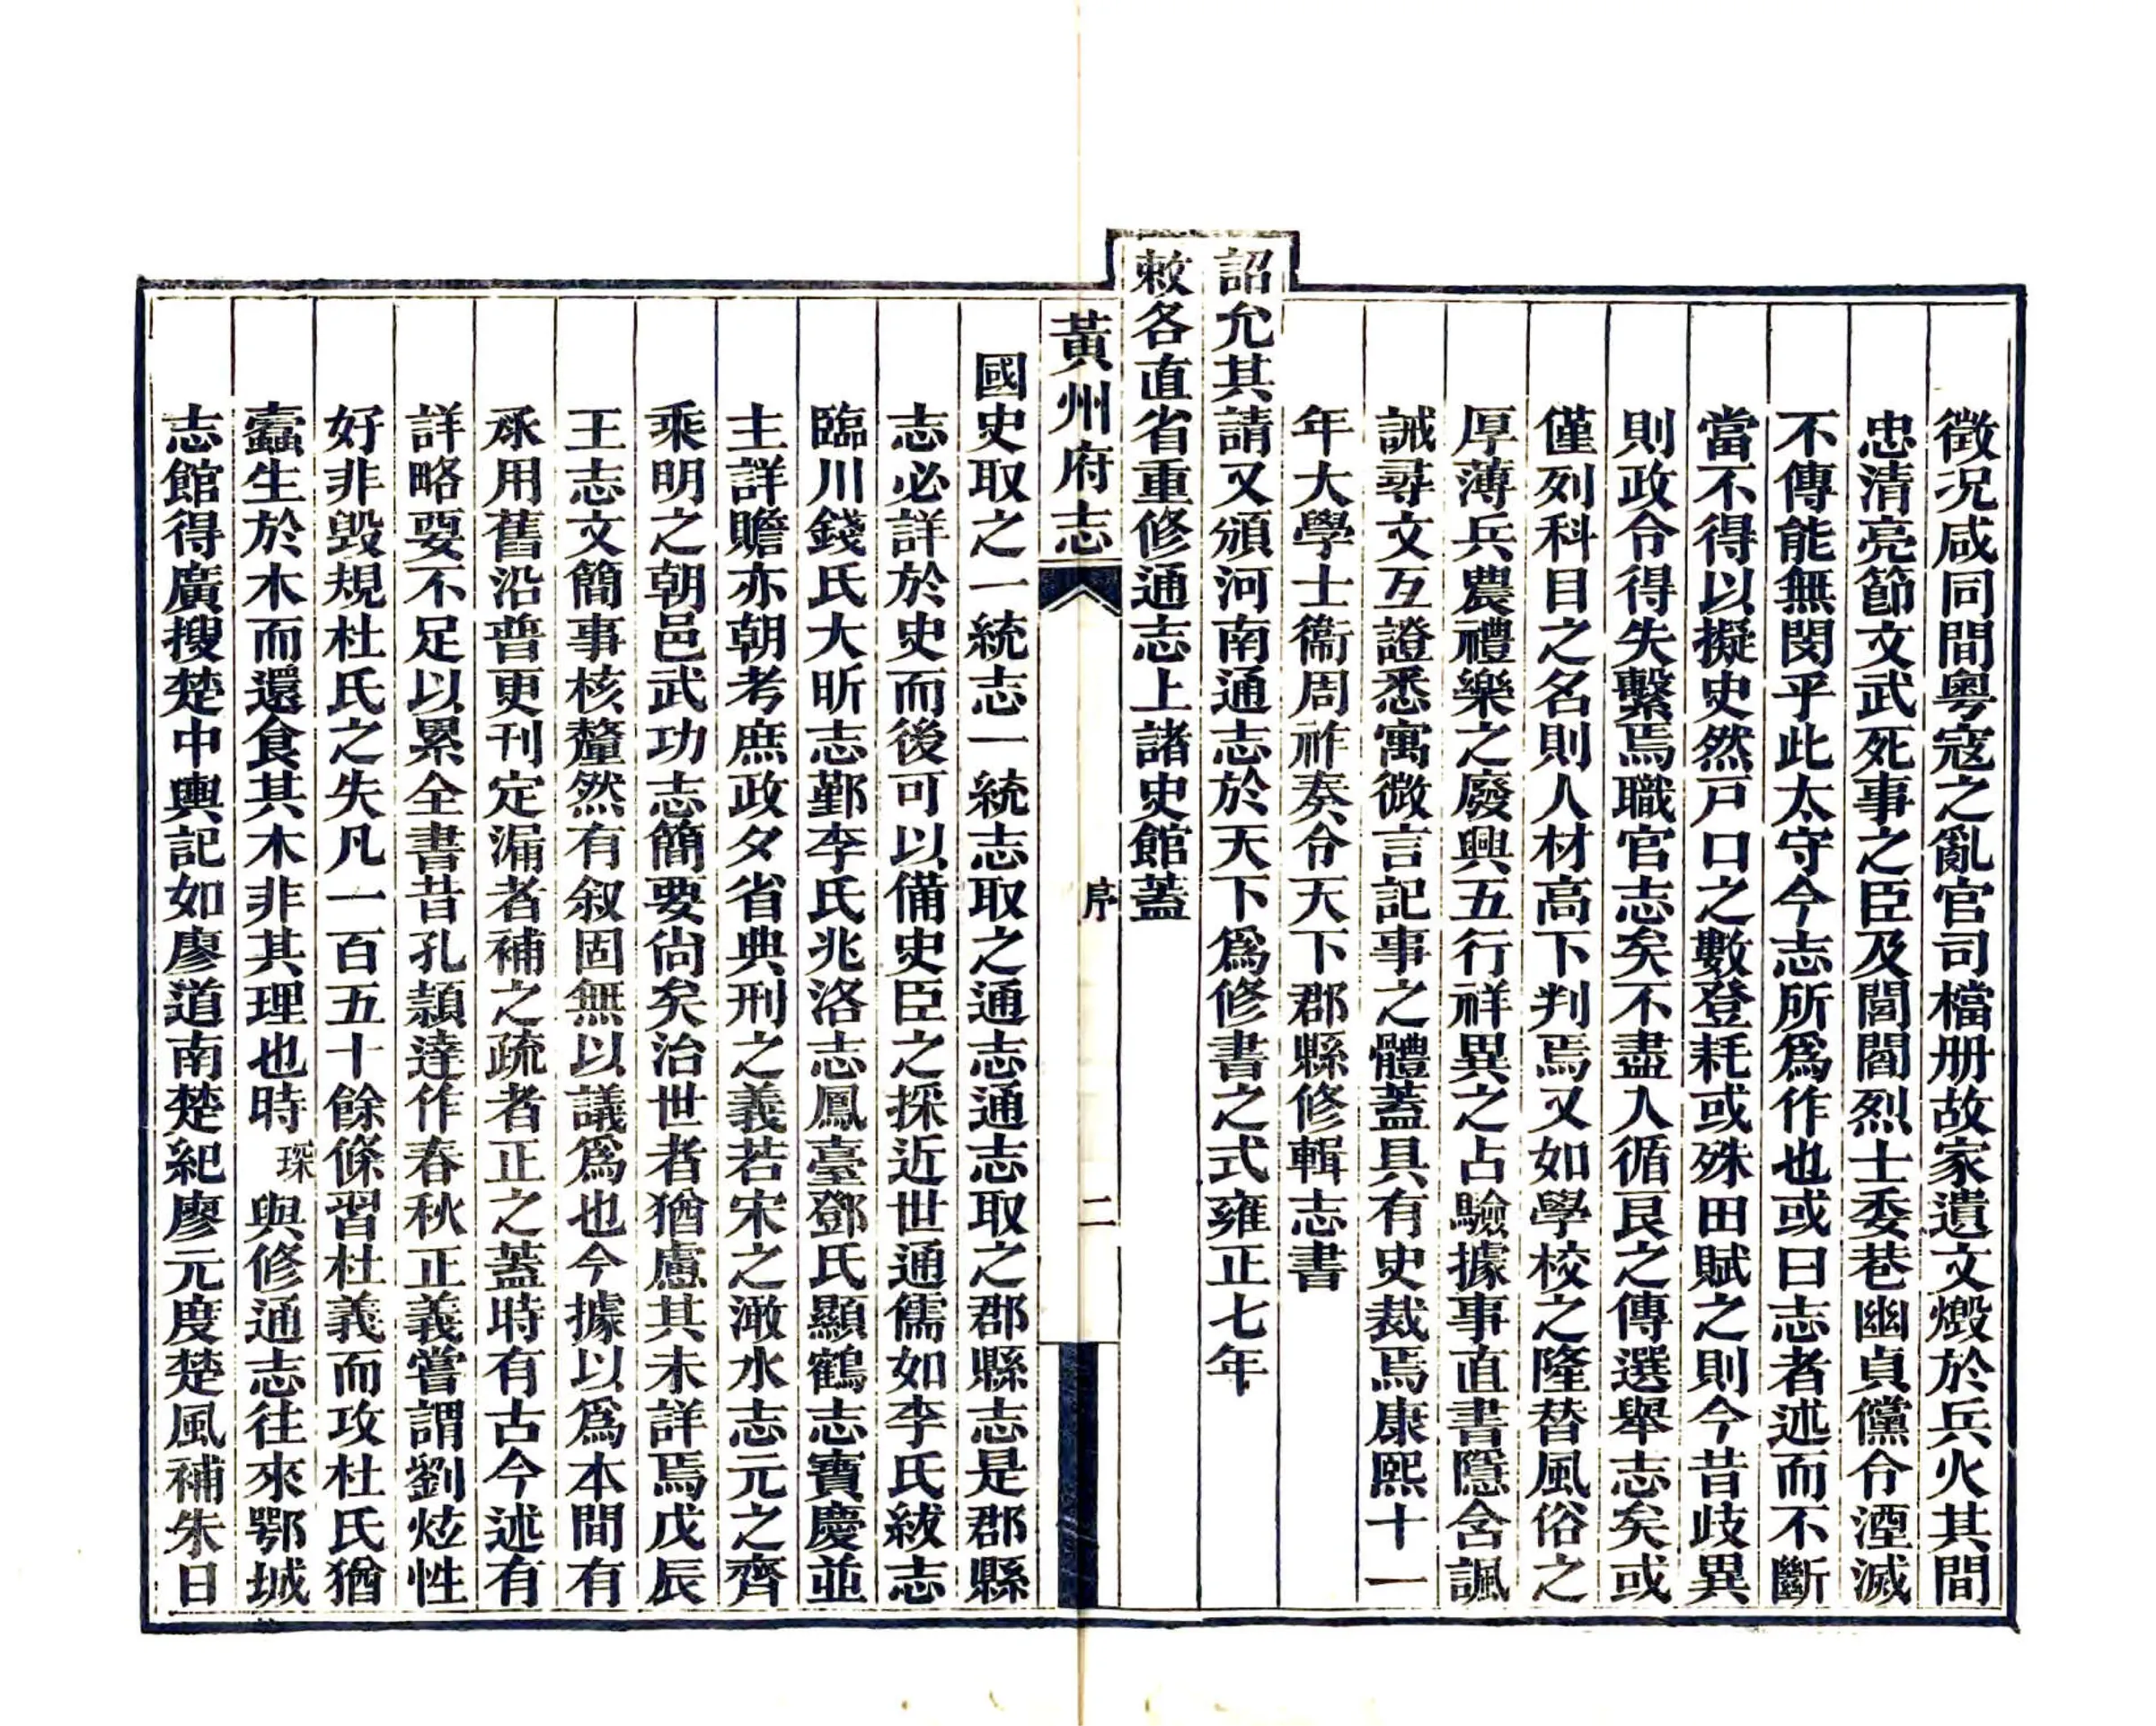 徵况咸同間粤寇之亂官司檔册故家遺文燬於兵火其間
忠清亮節文武死事之臣及閭閻烈士委巷幽貞儻令湮滅
不傳能無閔乎此太守今志所爲作也或曰志者述而不斷
當不得以擬史然戸口之數登耗或殊田賦之則今昔歧異
則政令得失繫焉職官志矣不盡人循艮之傳選舉志矣或
僅列科目之名則人材高下判焉又如學校之隆替風俗之
厚薄兵農禮樂之廢興五行祥異之占驗據事直書隱含諷
誡尋文互證悉寓微言記事之體蓋具有史裁焉康熙十一
年大學士衞周祚奏令天下郡縣修輯志書
詔允其請又頒河南通志於天下爲修書之式雍正七年
敕各直省重修通志上諸史館蓋
黃州府志
序
二
國史取之一統志一統志取之通志通志取之郡縣志是郡縣
志必詳於史而後可以備史臣之採近世通儒如李氏紱志
臨川錢氏大昕志鄞李氏兆洛志鳳臺鄧氏顯鶴志寶慶並
主詳贍亦朝考庶政夕省典刑之義若宋之澉水志元之齊
乘明之朝邑武功志簡要尙矣治世者猶慮其未詳焉戊辰
王志文簡事核釐然有叙固無以議爲也今據以爲本間有
承用舊沿普更刊定漏者補之疏者正之蓋時有古今述有
詳略要不足以累全書昔孔頴達作春秋正義嘗謂劉炫性
好非毀規杜氏之失凡一百五十餘條習杜義而攻杜氏猶
蠹生於木而還食其木非其理也時琛與修通志往來鄂城
志館得廣搜楚中輿記如廖道南楚紀廖元度楚風補朱日